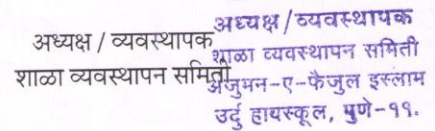 अध्यक्ष / व्यवस्थापक
शाळा व्यवस्थापन समिती
अध्यक्ष / व्यवस्थापक
शाळा व्यवस्थापन समिती
अंजुमन-ए-फैजुल इस्लाम
उर्दु हायस्कूल, पुणे-११.